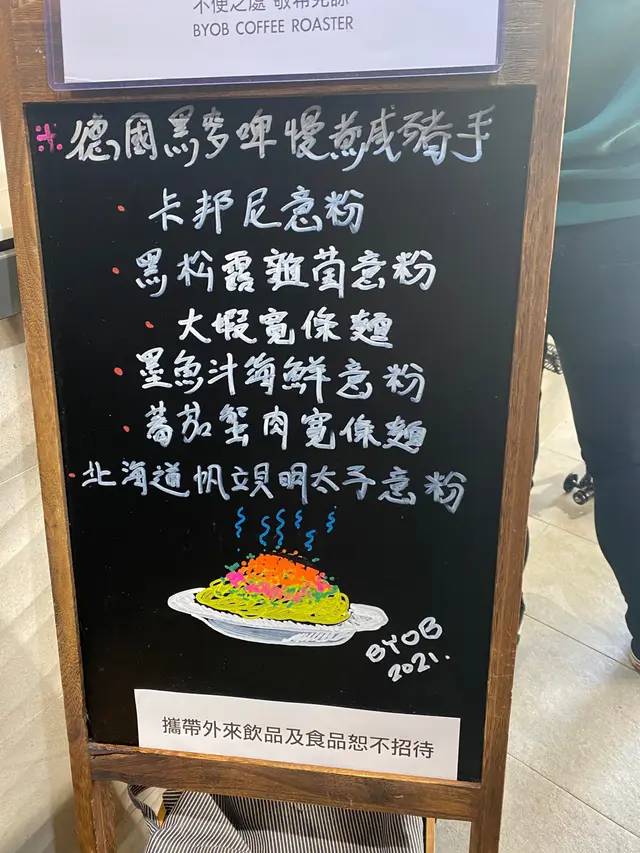 不便之處 敬希見諒
BYOB COFFEE ROASTER
德國黑麥啤慢煮咸豬手
卡邦尼意粉
黑松露雜菌意粉
大蝦寬條麵
墨魚汁海鮮意粉
蕃茄蟹肉寬條麵
北海道帆立貝明太子意粉
BYOB
2021.
攜帶外來飲品及食品恕不招待